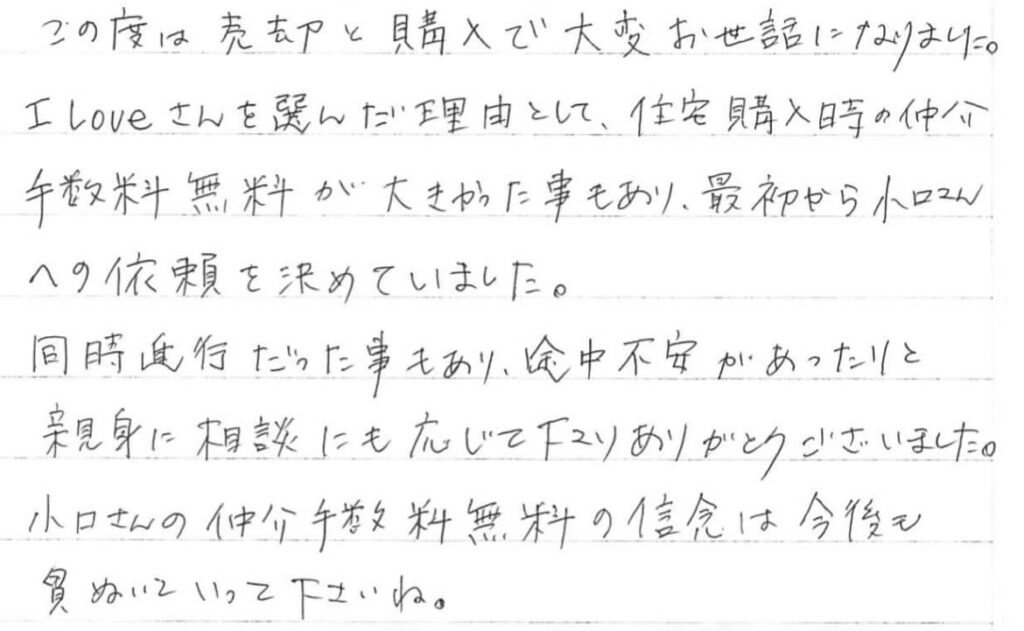 この度は売却と購入で大変お世話になりました。
I Loveさんを選んだ理由として、住宅購入時の仲介
手数料無料が大きかった事もあり、最初から小口さん
への依頼を決めていました。
同時進行だった事もあり、途中不安があったりと
親身に相談にも応じて下さりありがとうございました。
小口さんの仲介手数料無料の信念は今後も
貫ぬいていって下さいね。